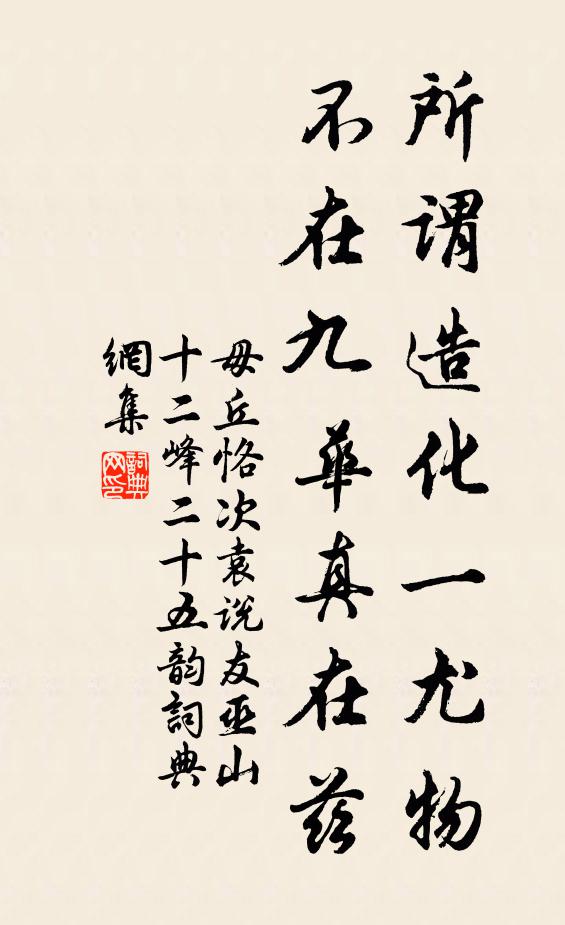 所谓造化一尤物
不在九華真在兹
毋丘恪次袁说友巫山
十二峰二十五韵詞典
網集
詞典网印